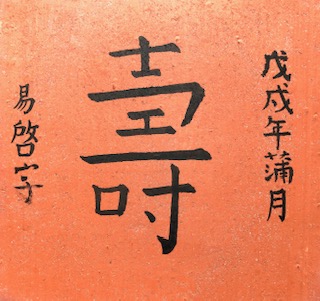 戊戌年蒲月
壽
易啓字